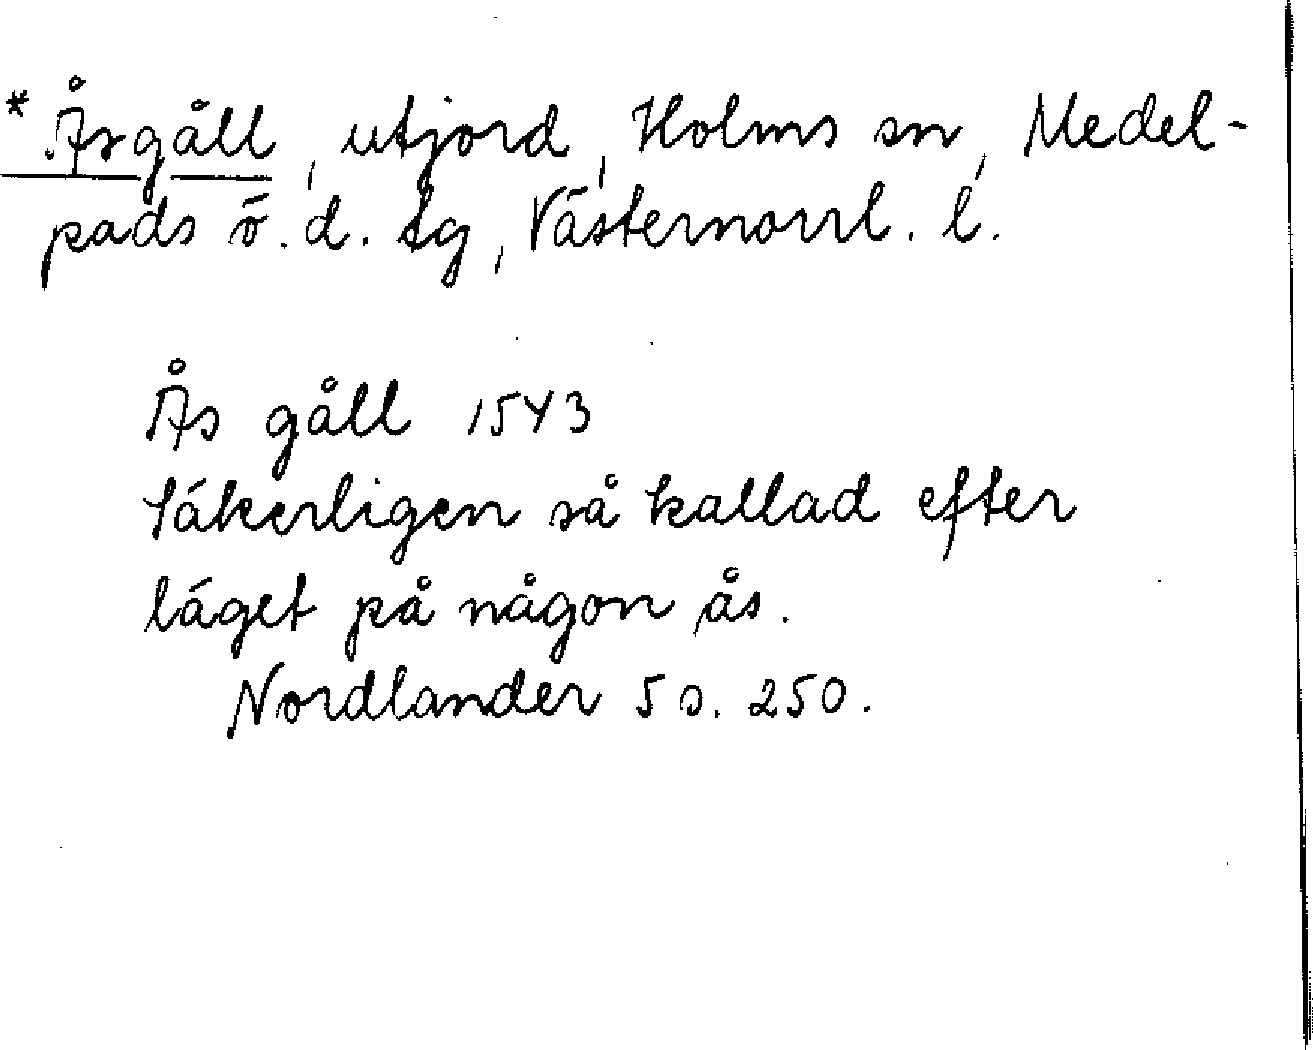 * Åsgåll, utjord, Holms sn, Medel-
pads ö. d. tg, Västernorrl. l.
Ås gåll 1543
säkerligen så kallad efter
läget på någon ås.
Nordlander 5 s. 250.